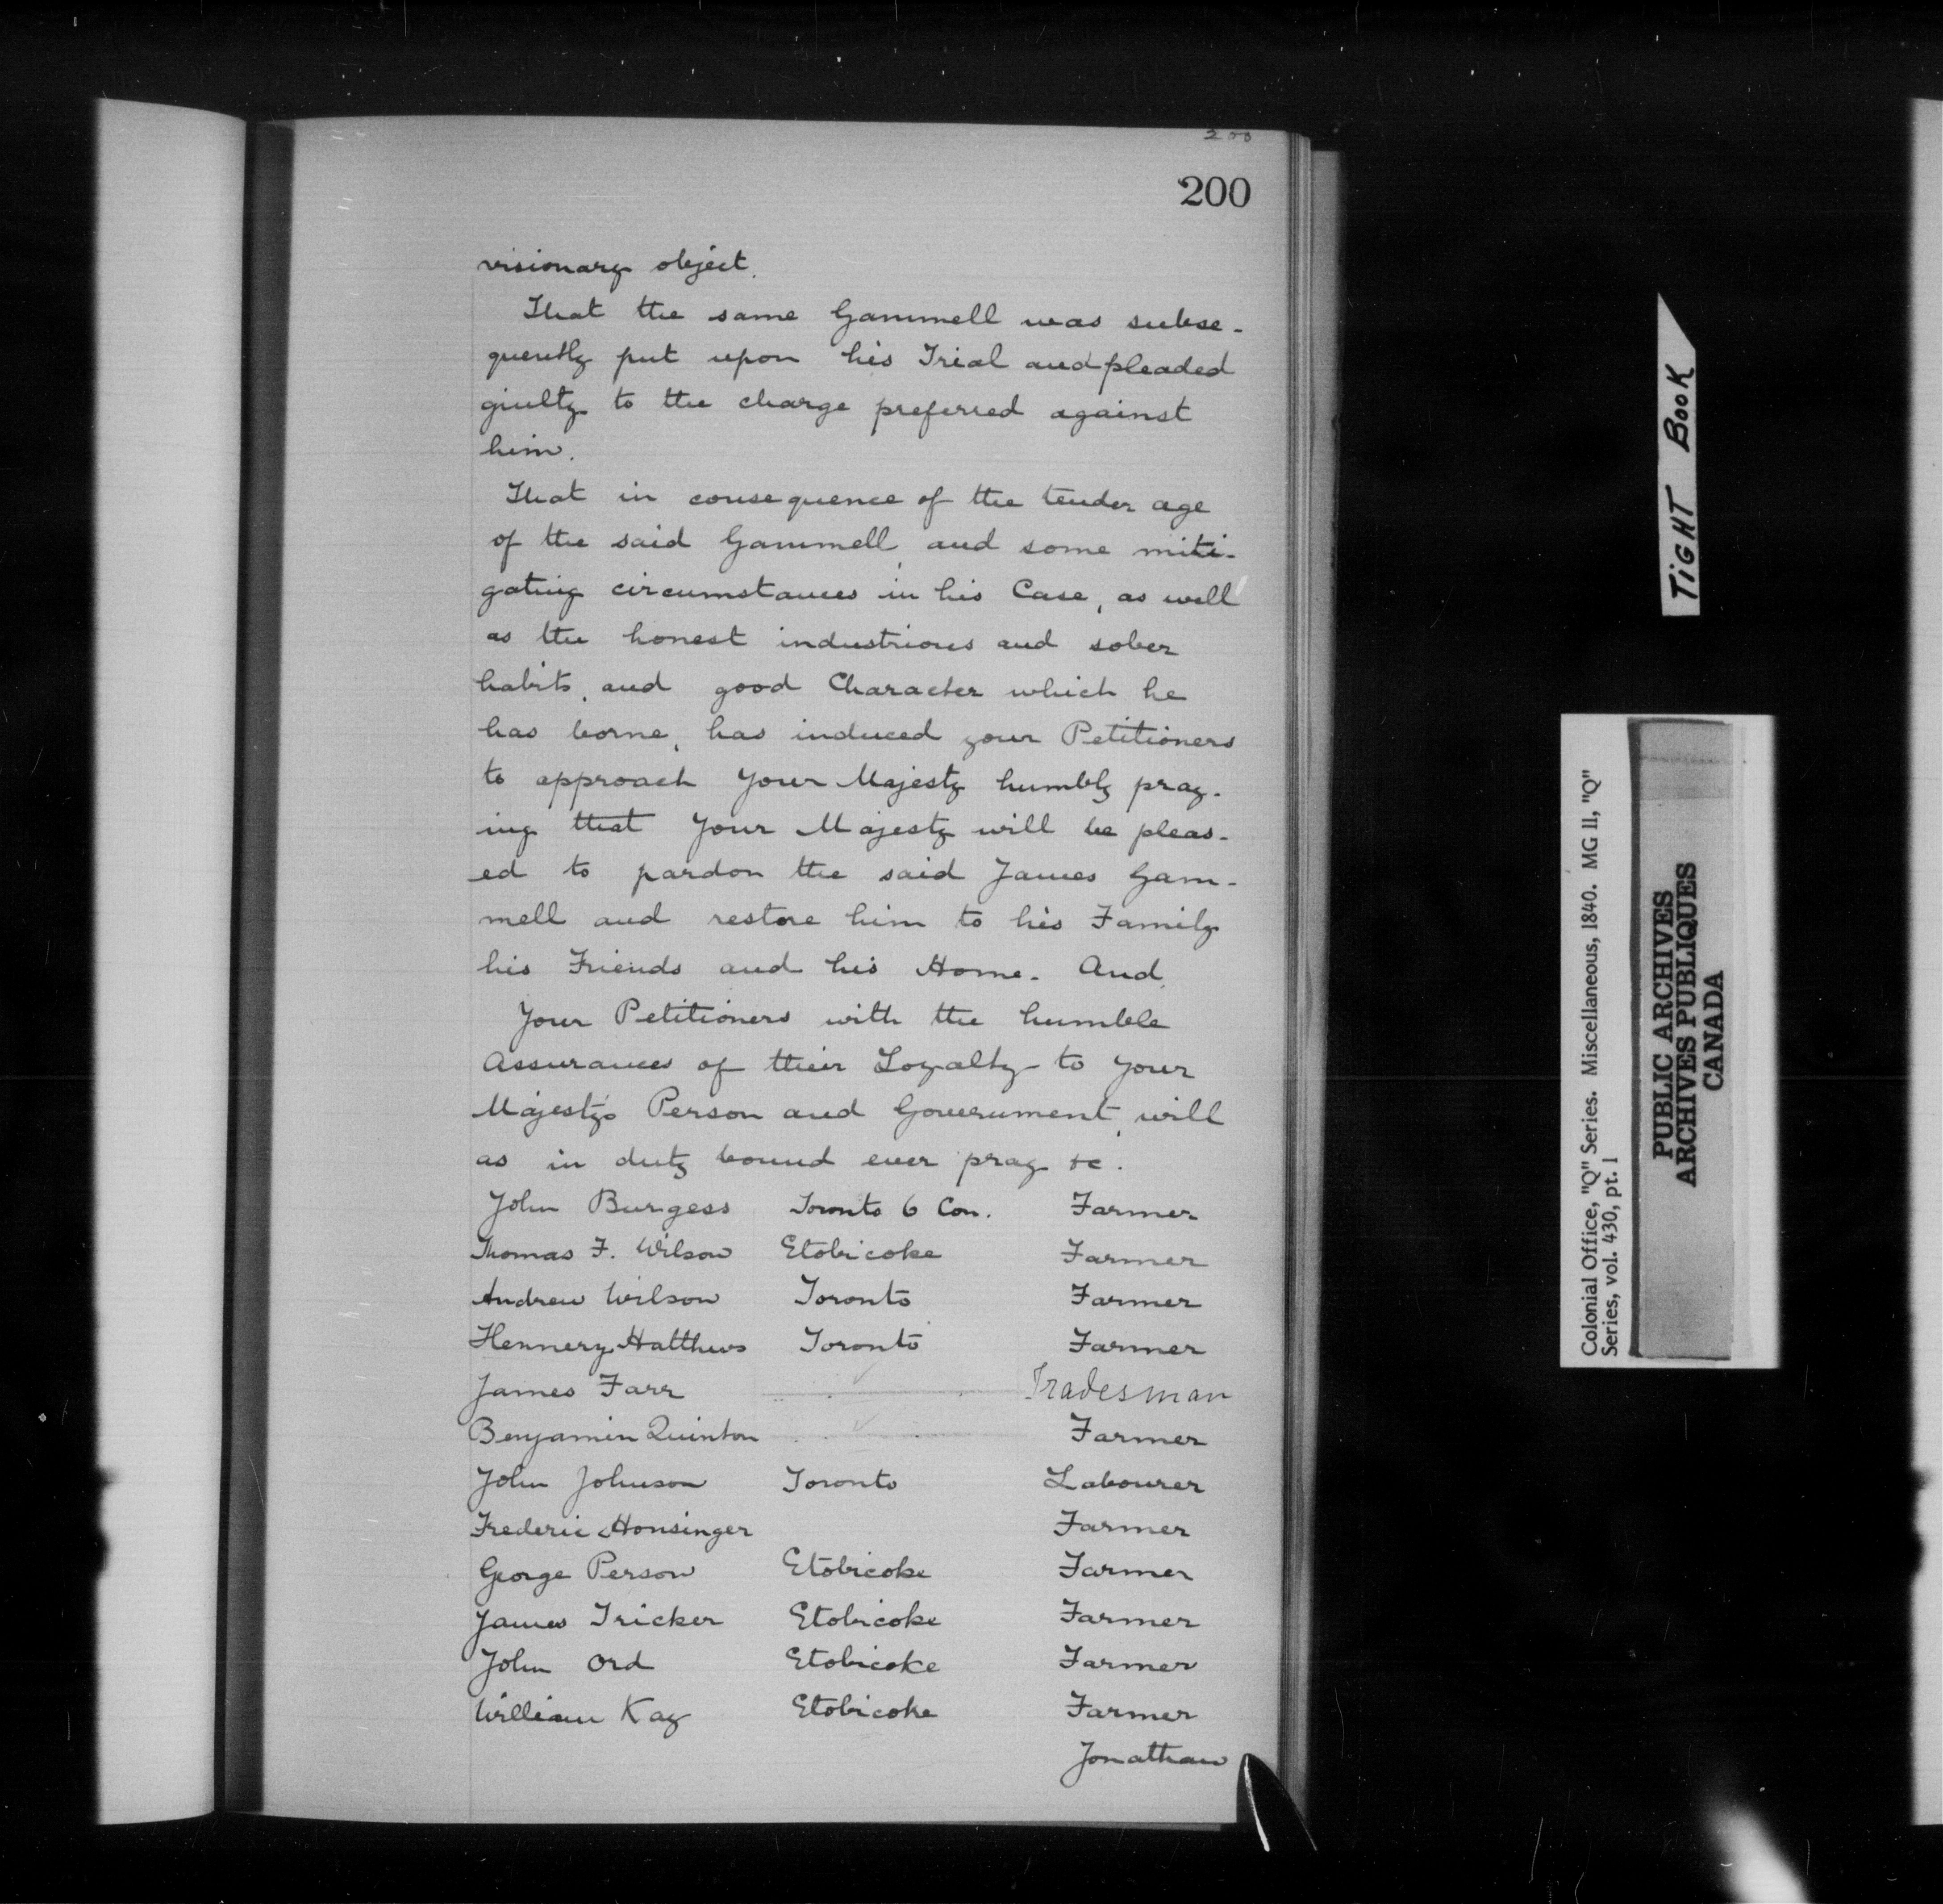 200
200
visionary object.
That the same Gammell was subse-
quently put upon his Trial and pleaded
guilty to the charge preferred against
him.
That in consequence of the tender age
of the said Gammell, and some miti-
gating circumstances in his Case, as well
as the honest industrious and sober
habits, and good Character which he
has borne, has induced your Petitioners
to approach Your Majesty humbly pray-
ing that Your Majesty will be pleas-
ed to pardon the said James Gam-
mell and restore him to his Family
his Friends and his Home. And,
Your Petitioners with the humble
Assurances of their Loyalty to Your
Majesty's Person and Government, will
as in duty bound ever pray &c.
John Burgess Toronto 6 Con. Farmer
Thomas F. Wilson Etobicoke Farmer
Andrew Wilson Toronto Farmer
Hennery Matthews Toronto Farmer
James Farr Tradesman
Benjamin Quinton Farmer
John Johnson Toronto Labourer
Frederic Honsinger Farmer
George Person Etobicoke Farmer
James Tricker Etobicoke Farmer
John Ord Etobicoke Farmer
William Kay Etobicoke Farmer
Jonathan
TIGHT BOOK
Colonial Office, "Q" Series. Miscellaneous, 1840. MG 11, "Q"
Series, vol. 430, pt. 1
PUBLIC ARCHIVES
ARCHIVES PUBLIQUES
CANADA